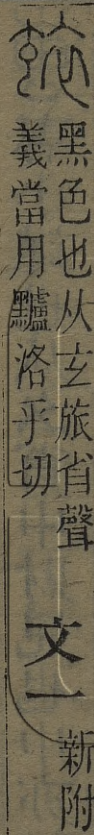 玈
黑色也从玄旅省聲
義當用黸洛乎切
文一
新附